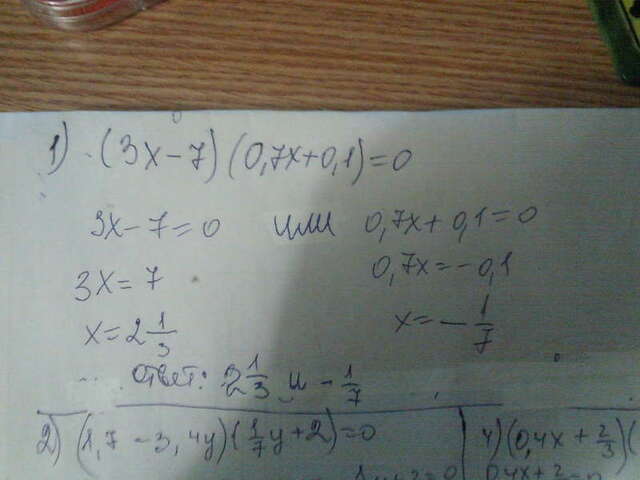 1) (3x-7)(0,7x+0,1)=0
3x-7=0 или 0,7x+0,1=0
3x=7 0,7x=-0,1
x=2 1/3 x=-1/7
Ответ: 2 1/3 и -1/7
2) (1,7-3,4y)(1/7y+2)=0
4) (0,4x+2/3)(